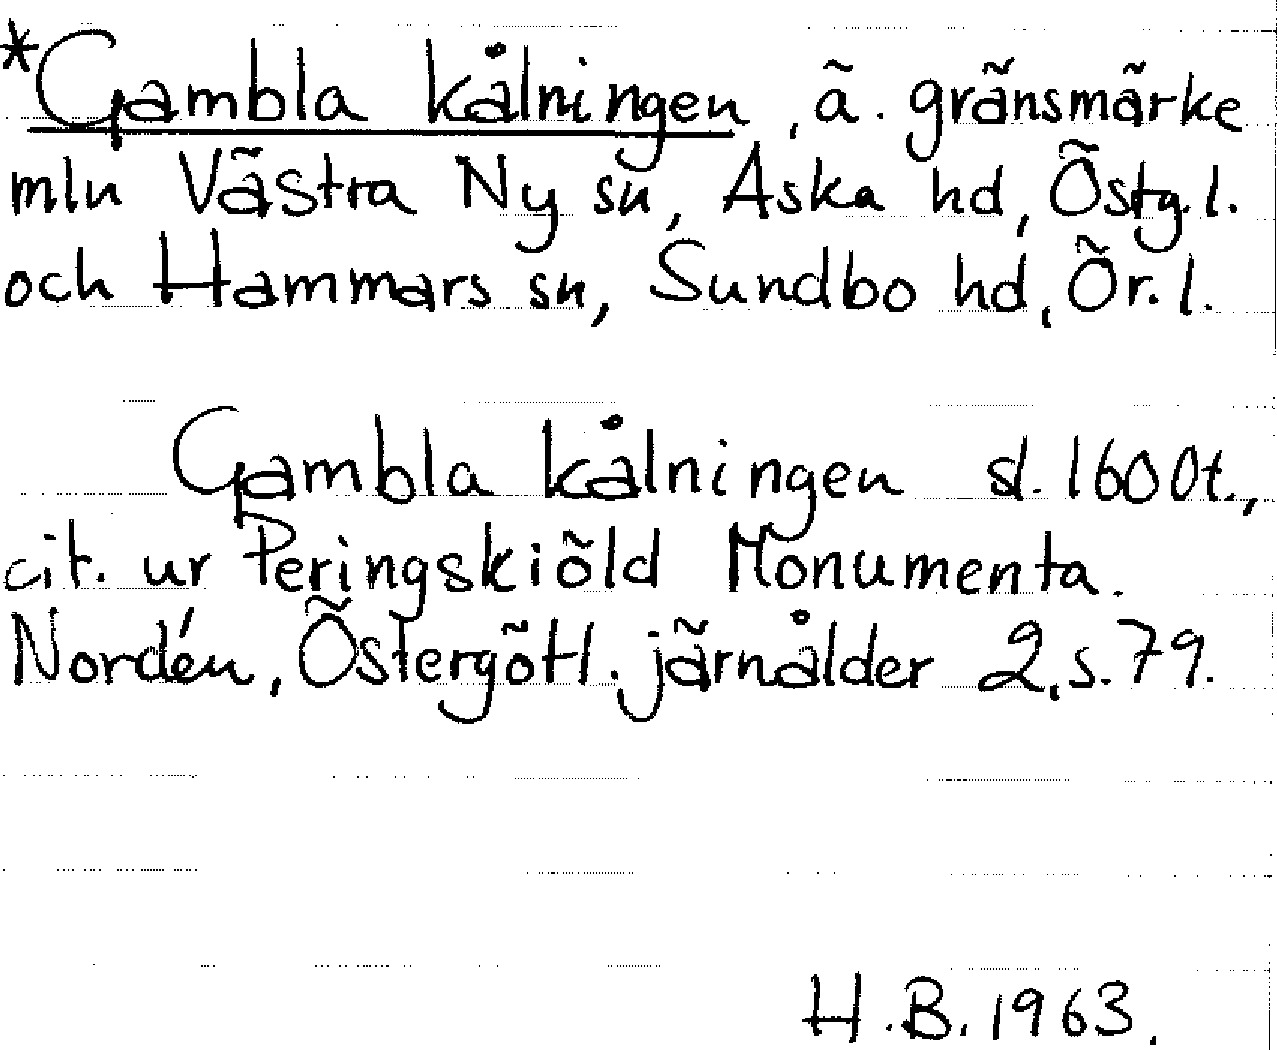 *Gambla kålningen, ä. gränsmärke
mln Västra Ny sn, Aska hd, Östg. l.
och Hammars sn, Sundbo hd, Ör. l.
Gambla kålningen sl. 1600t.,
cit. ur Peringskiöld Monumenta.
Nordén, Östergötl. järnålder 2, s. 79.
H.B. 1963.